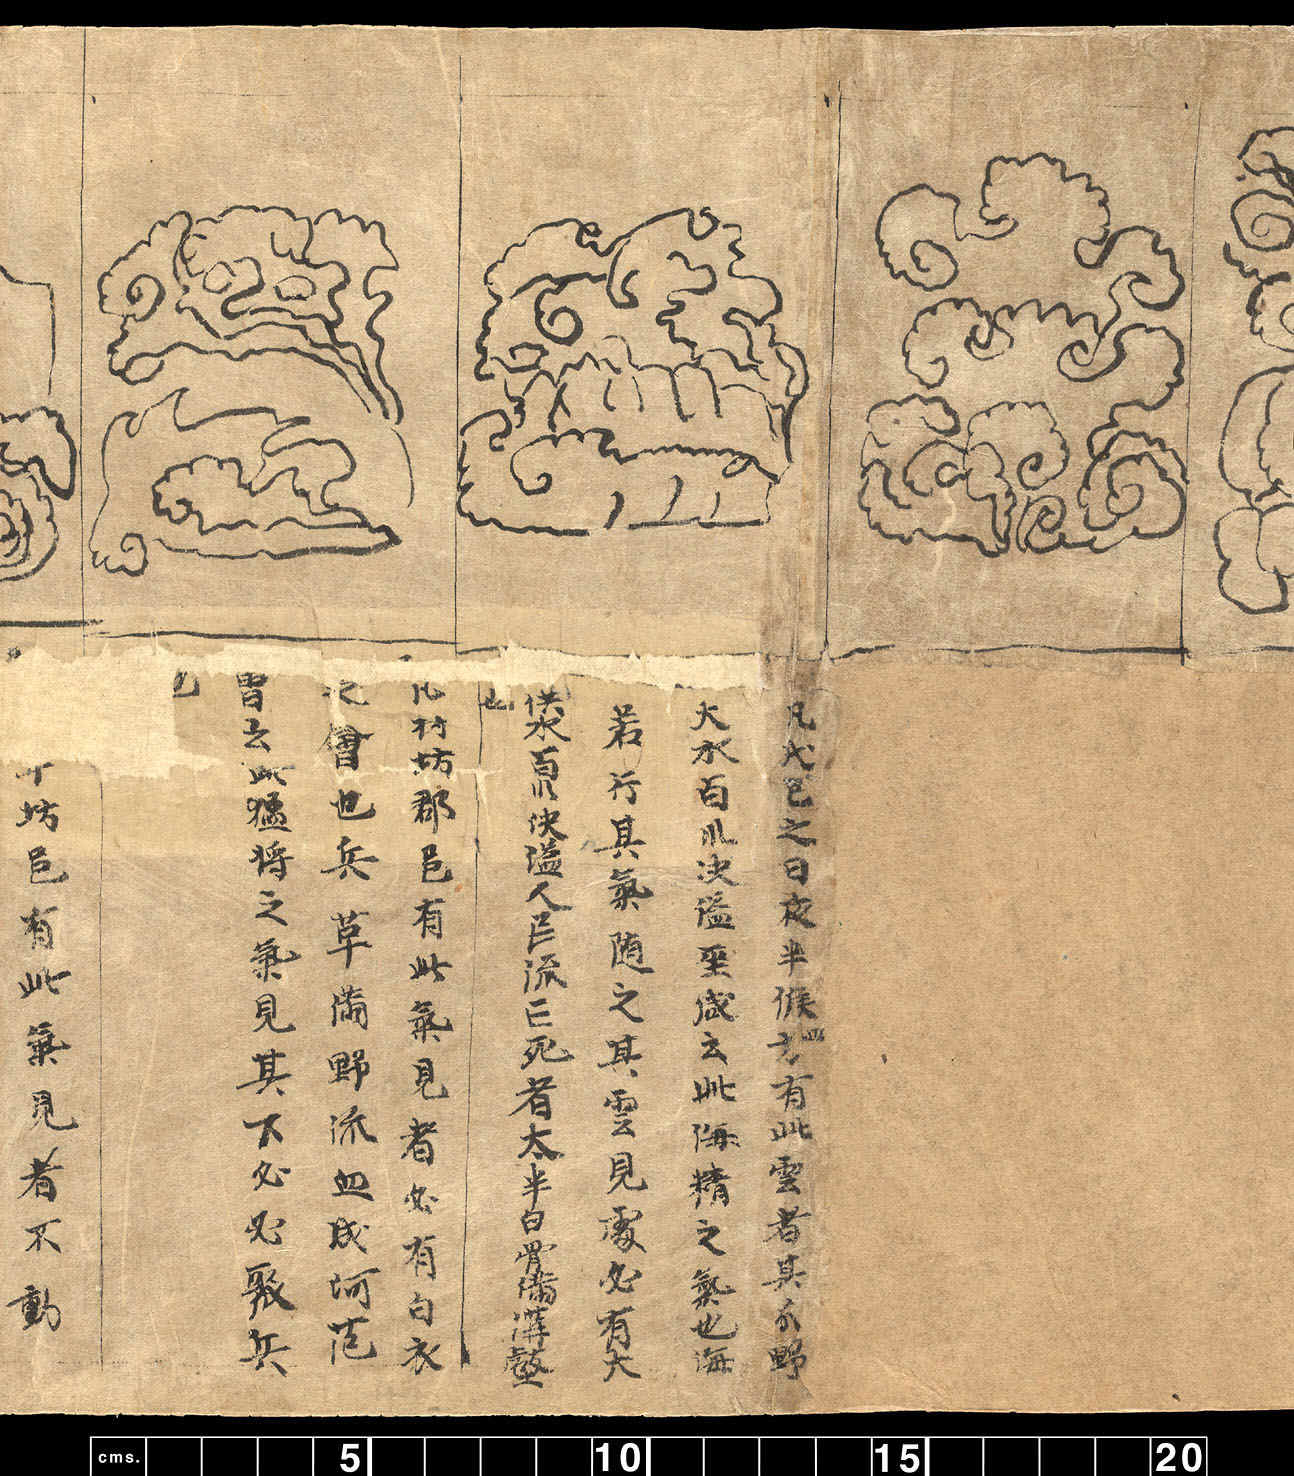 凡戊己之日夜半候四方有此雲者其分野
大水百川決溢至咸云此海精之氣也海
若行其氣随之其雲見處必有大
洪水百川決溢人民流亡死者太半白骨備溝壑
也
凡村坊郡邑有此氣見者必有白衣
之會也兵草滿野流血成河范
曾云此猛將之氣見其下必必聚兵
也
坊邑有此氣見者不動
cms. 5 10 15 20